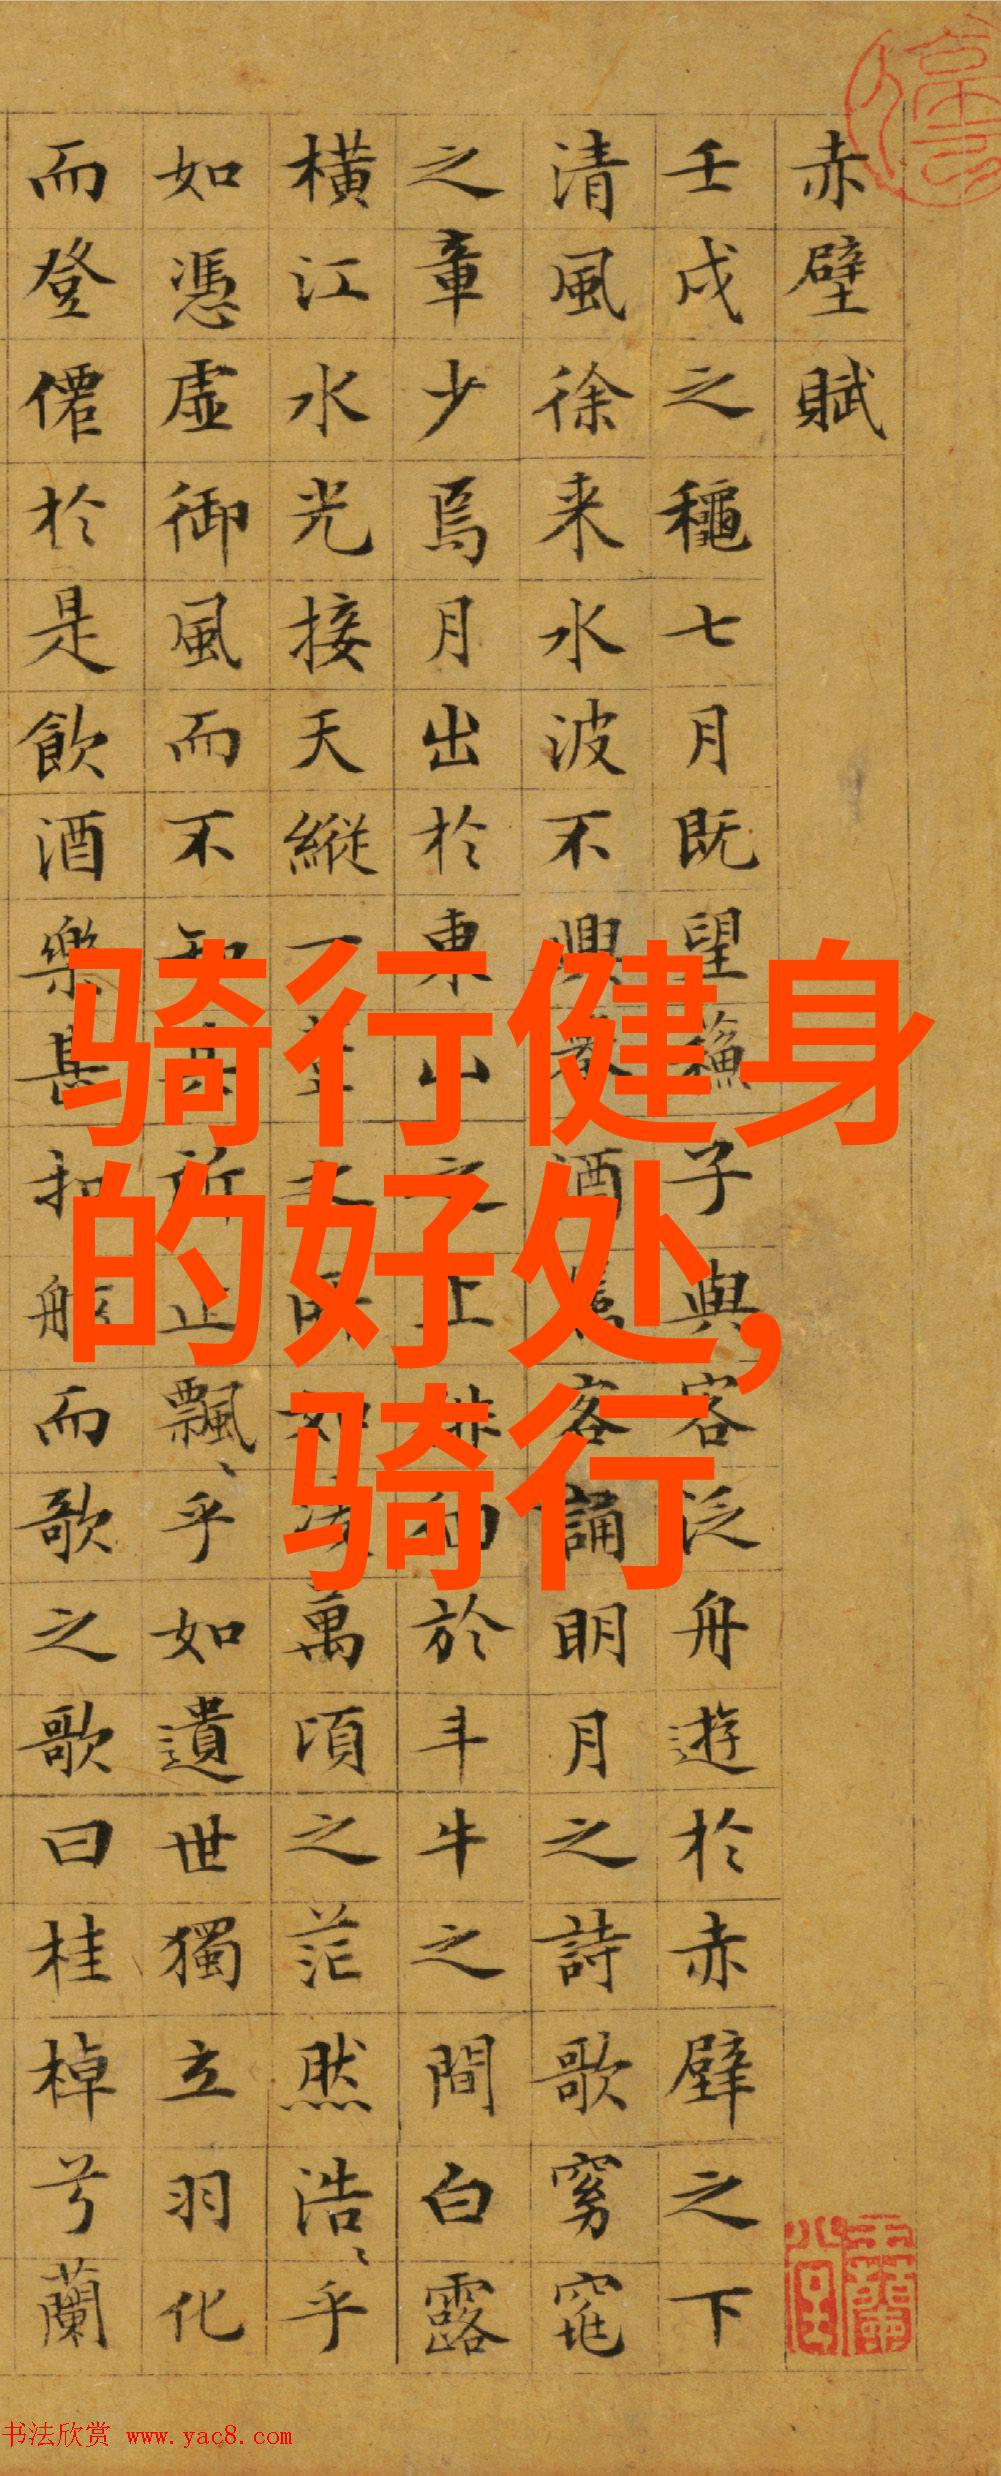 赤壁賦
壬戌之穐七月既望蘓子與客泛舟遊於赤壁之下
清風徐来水波不興舉酒屬客誦明月之詩歌窈窕
之章少焉月出於東山之上徘徊於斗牛之間白露
橫江水光接天縱一葦之所如凌萬頃之茫然浩〻乎
如憑虛御風而不知其所止飄〻乎如遺世獨立羽化
而登僊於是飲酒樂甚扣舷而歌之歌曰桂棹兮蘭
骑行健身
的好处,
骑行
书法欣赏 www.yac8.com